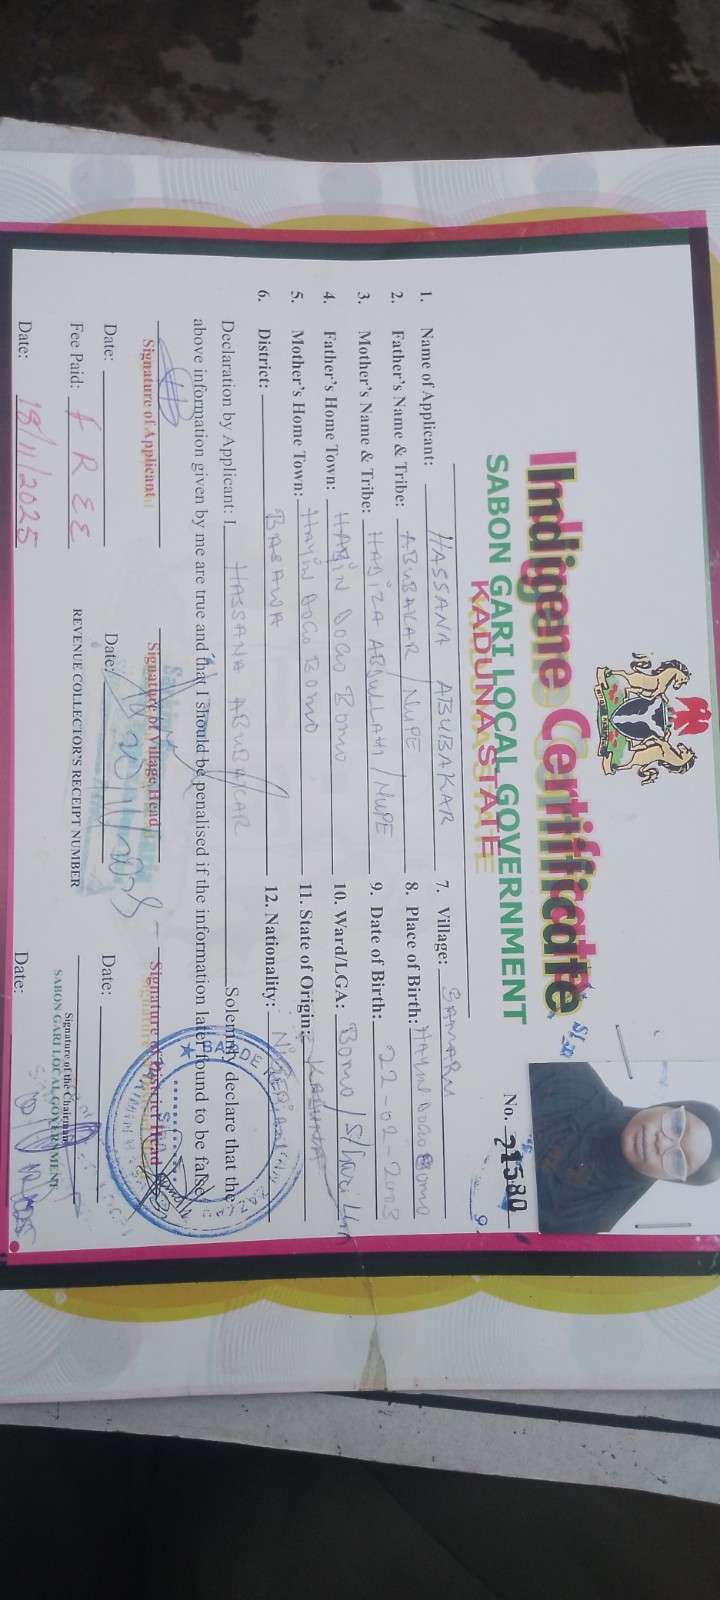 Indigene Certificate
SABON GARI LOCAL GOVERNMENT
KADUNA STATE
No. 21580
1. Name of Applicant: HASSANA ABUBAKAR
2. Father's Name & Tribe: ABUBAKAR / NUPE
3. Mother's Name & Tribe: HAJIZA ABDULLAHI / NUPE
4. Father's Home Town: HAYIN DOGO BOMO
5. Mother's Home Town: HAYIN DOGO BOMO
6. District: BASAWA
7. Village: SAMARU
8. Place of Birth: HAYIN DOGO BOMO
9. Date of Birth: 22-02-2003
10. Ward/LGA: BOMO / S/Gari
11. State of Origin: KADUNA
12. Nationality: NIGERIAN
Declaration by Applicant: I HASSANA ABUBAKAR Solemnly declare that the
above information given by me are true and that I should be penalised if the information later found to be false
Signature of Applicant
Signature of Village Head
Signature of District Head
Date:
Date: 20/11/2025
Date:
Fee Paid: FREE
REVENUE COLLECTOR'S RECEIPT NUMBER
Signature of the Chairman
SABON GARI LOCAL GOVERNMENT
Date: 18/11/2025
Date: